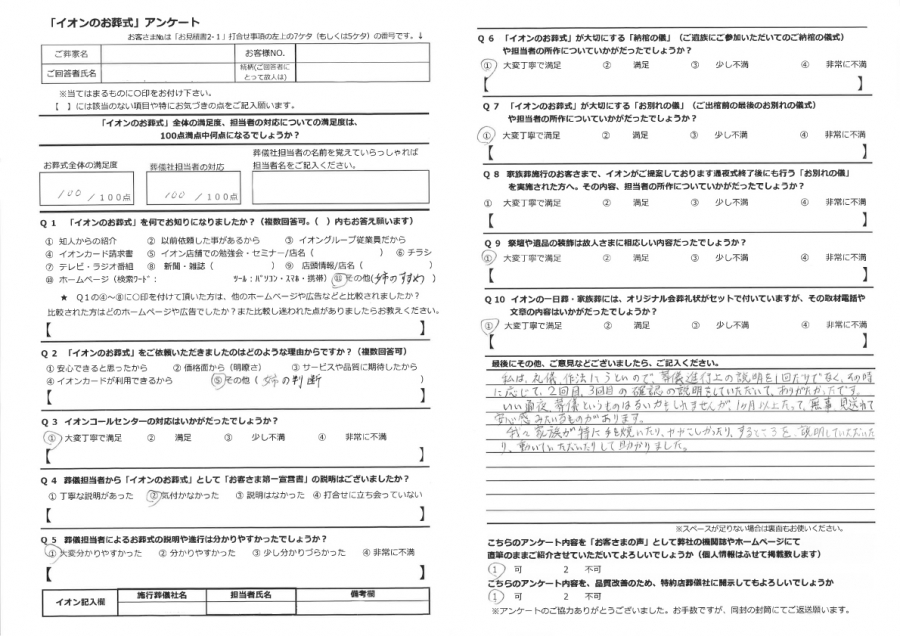 「イオンのお葬式」アンケート
お客さまNo.は「お見積書2-1」打合せ事項の左上の7ケタ（もしくは5ケタ）の番号です。↓
ご葬家名 お客様NO.
ご回答者氏名 続柄(ご回答者にとって故人は)
※当てはまるものに○印をお付け下さい。
【 】には該当のない項目や特にお気づきの点をご記入願います。
「イオンのお葬式」全体の満足度、担当者の対応についての満足度は、
100点満点中何点になるでしょうか？
お葬式全体の満足度 葬儀社担当者の対応 葬儀社担当者の名前を覚えていらっしゃれば
担当者名をご記入ください。
100 /100点 100 /100点
Q1 「イオンのお葬式」を何でお知りになりましたか？（複数回答可。（ ）内もお答え願います）
① 知人からの紹介 ② 以前依頼した事があるから ③ イオングループ従業員だから
④ イオンカード請求書 ⑤ イオン店舗での勉強会・セミナー/店名（ ） ⑥ チラシ
⑦ テレビ・ラジオ番組 ⑧ 新聞・雑誌（ ） ⑨ 店頭情報/店名（ ）
⑩ ホームページ（検索ﾜｰﾄﾞ： ﾂｰﾙ：ﾊﾟｿｺﾝ・ｽﾏﾎ・携帯） ⑪ その他（姉のすすめ）
★ Q1の④～⑧に○印を付けて頂いた方は、他のホームページや広告などと比較されましたか？
比較された方はどのホームページや広告でしたか？また比較し迷われた点がありましたらお教えください。
【 】
Q2 「イオンのお葬式」をご依頼いただきましたのはどのような理由からですか？（複数回答可）
① 安心できると思ったから ② 価格面から（明瞭さ） ③ サービスや品質に期待したから
④ イオンカードが利用できるから ⑤ その他（姉の判断 ）
【 】
Q3 イオンコールセンターの対応はいかがだったでしょうか？
① 大変丁寧で満足 ② 満足 ③ 少し不満 ④ 非常に不満
【 】
Q4 葬儀担当者から「イオンのお葬式」として「お客さま第一宣言書」の説明はございましたか？
① 丁寧な説明があった ② 気付かなかった ③ 説明はなかった ④ 打合せに立ち会っていない
【 】
Q5 葬儀担当者によるお葬式の説明や進行は分かりやすかったでしょうか？
① 大変分かりやすかった ② 分かりやすかった ③ 少し分かりづらかった ④ 非常に不満
【 】
イオン記入欄 施行葬儀社名 担当者氏名 備考欄
Q6 「イオンのお葬式」が大切にする「納棺の儀」（ご遺族にご参加いただいてのご納棺の儀式）
や担当者の所作についていかがだったでしょうか？
① 大変丁寧で満足 ② 満足 ③ 少し不満 ④ 非常に不満
【 】
Q7 「イオンのお葬式」が大切にする「お別れの儀」（ご出棺前の最後のお別れの儀式）
や担当者の所作についていかがだったでしょうか？
① 大変丁寧で満足 ② 満足 ③ 少し不満 ④ 非常に不満
【 】
Q8 家族葬施行のお客さまで、イオンがご提案しております通夜式終了後にも行う「お別れの儀」
を実施された方へ。その内容、担当者の所作についていかがだったでしょうか？
① 大変丁寧で満足 ② 満足 ③ 少し不満 ④ 非常に不満
【 】
Q9 祭壇や遺品の装飾は故人さまに相応しい内容だったでしょうか？
① 大変丁寧で満足 ② 満足 ③ 少し不満 ④ 非常に不満
【 】
Q10 イオンの一日葬・家族葬には、オリジナル会葬礼状がセットで付いていますが、その取材電話や
文章の内容はいかがだったでしょうか？
① 大変丁寧で満足 ② 満足 ③ 少し不満 ④ 非常に不満
【 】
最後にその他、ご意見などございましたら、ご記入ください。
私は、礼儀、作法にうといので、葬儀進行上の説明を1回だけでなく、その時
に応じて、2回目、3回目の確認の説明をしていただいて、ありがたかったです。
いい通夜、葬儀というものはないかもしれませんが、1ヶ月以上たって、無事、見送れて
安心感みたいなものがあります。
我々家族が特に手を焼いたり、ややこしかったり、するところを、説明していただいた
り、動いていただいたりして助かりました。
※スペースが足りない場合は裏面もお使いください。
こちらのアンケート内容を「お客さまの声」として弊社の機関誌やホームページにて
直筆のままご紹介させていただいてよろしいでしょうか（個人情報はふせて掲載します）
1 可 2 不可
こちらのアンケート内容を、品質改善のため、特約店葬儀社に開示してもよろしいでしょうか
1 可 2 不可
※アンケートのご協力ありがとうございました。お手数ですが、同封の封筒にてご返送願います。